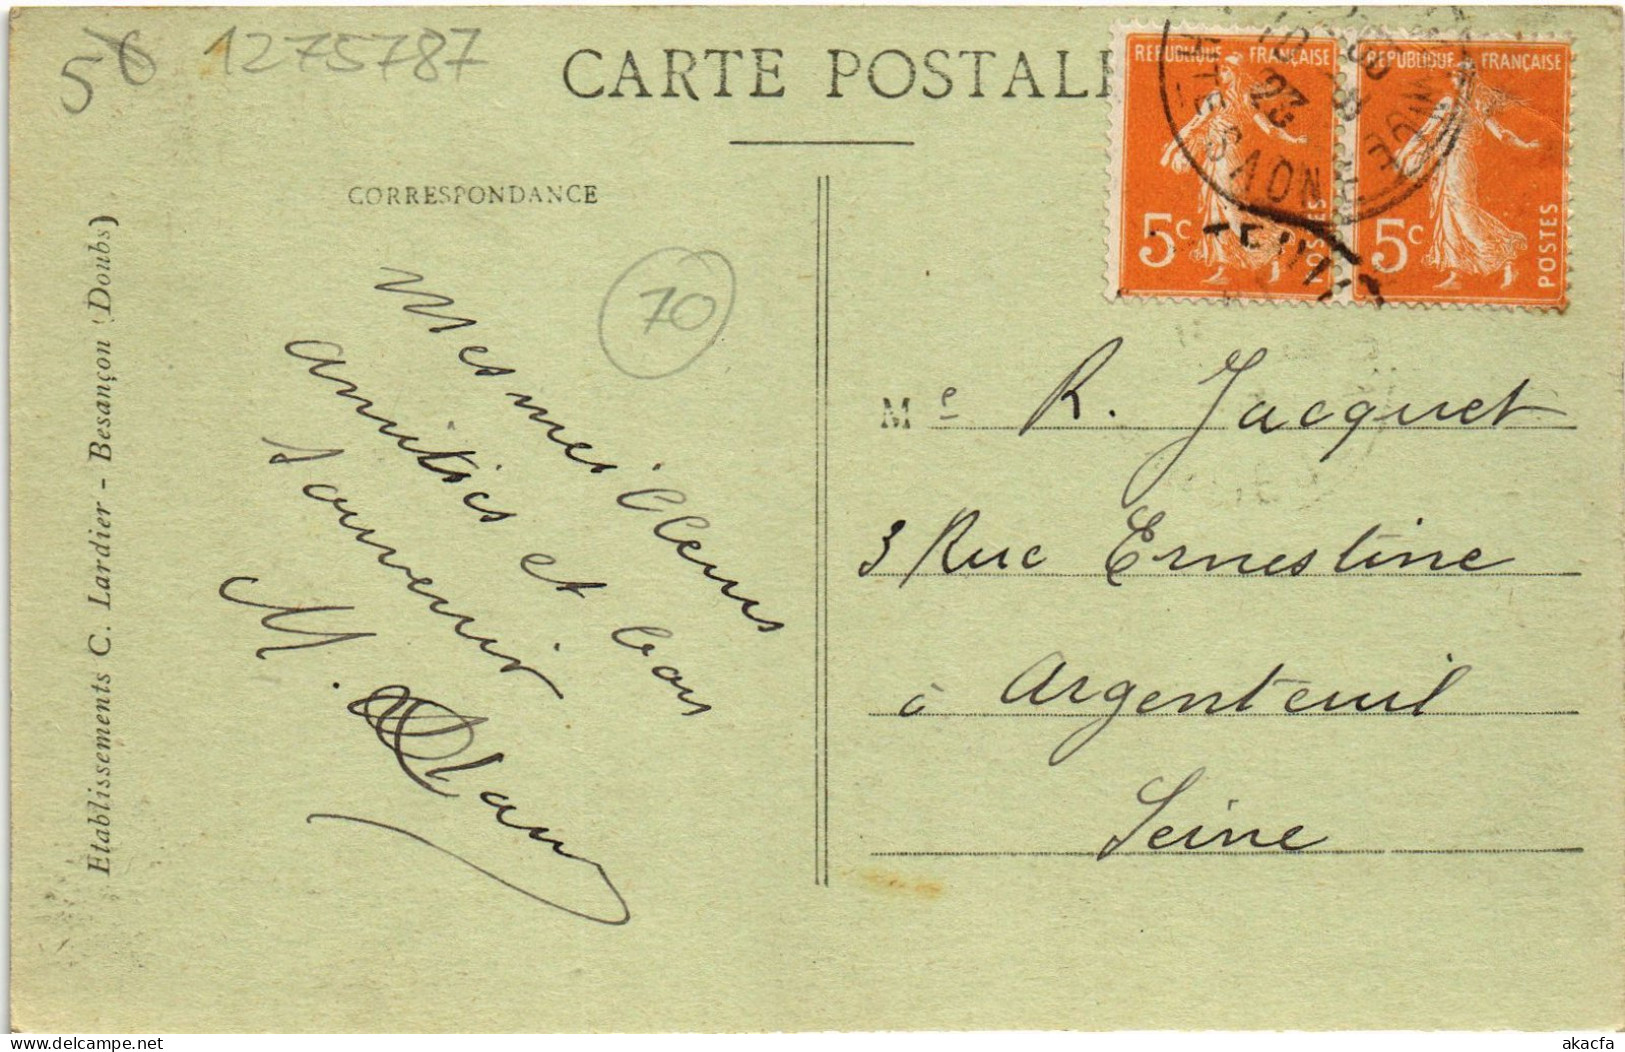 56 1275787
CARTE POSTALE
CORRESPONDANCE
70
Mes meilleurs
amitiés et bons
souvenir
M.
Etablissements C. Lardier - Besançon (Doubs)
REPUBLIQUE FRANÇAISE
5c
POSTES
REPUBLIQUE FRANÇAISE
5c
POSTES
23
HTE SAONE
Me R. Jacquet
3 Rue Ernestine
à Argenteuil
Seine
akacfa